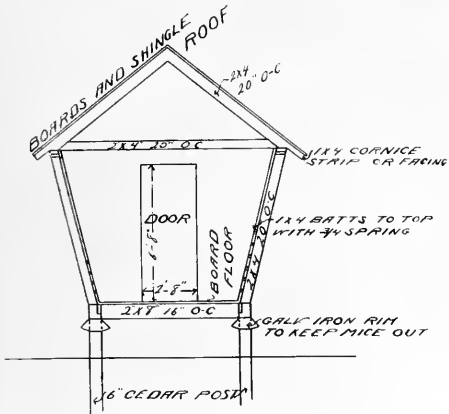 BOARDS AND SHINGLE
ROOF
2X4
20" O-C
2X4 20" O-C
1X4 CORNICE
STRIP OR FACING
DOOR
6'-8"
2'-8"
BOARD
FLOOR
1X4 BATTS TO TOP
WITH 3/4 SPRING
2X4 20" O-C
2X8 16" O-C
GALV IRON RIM
TO KEEP MICE OUT
6" CEDAR POST